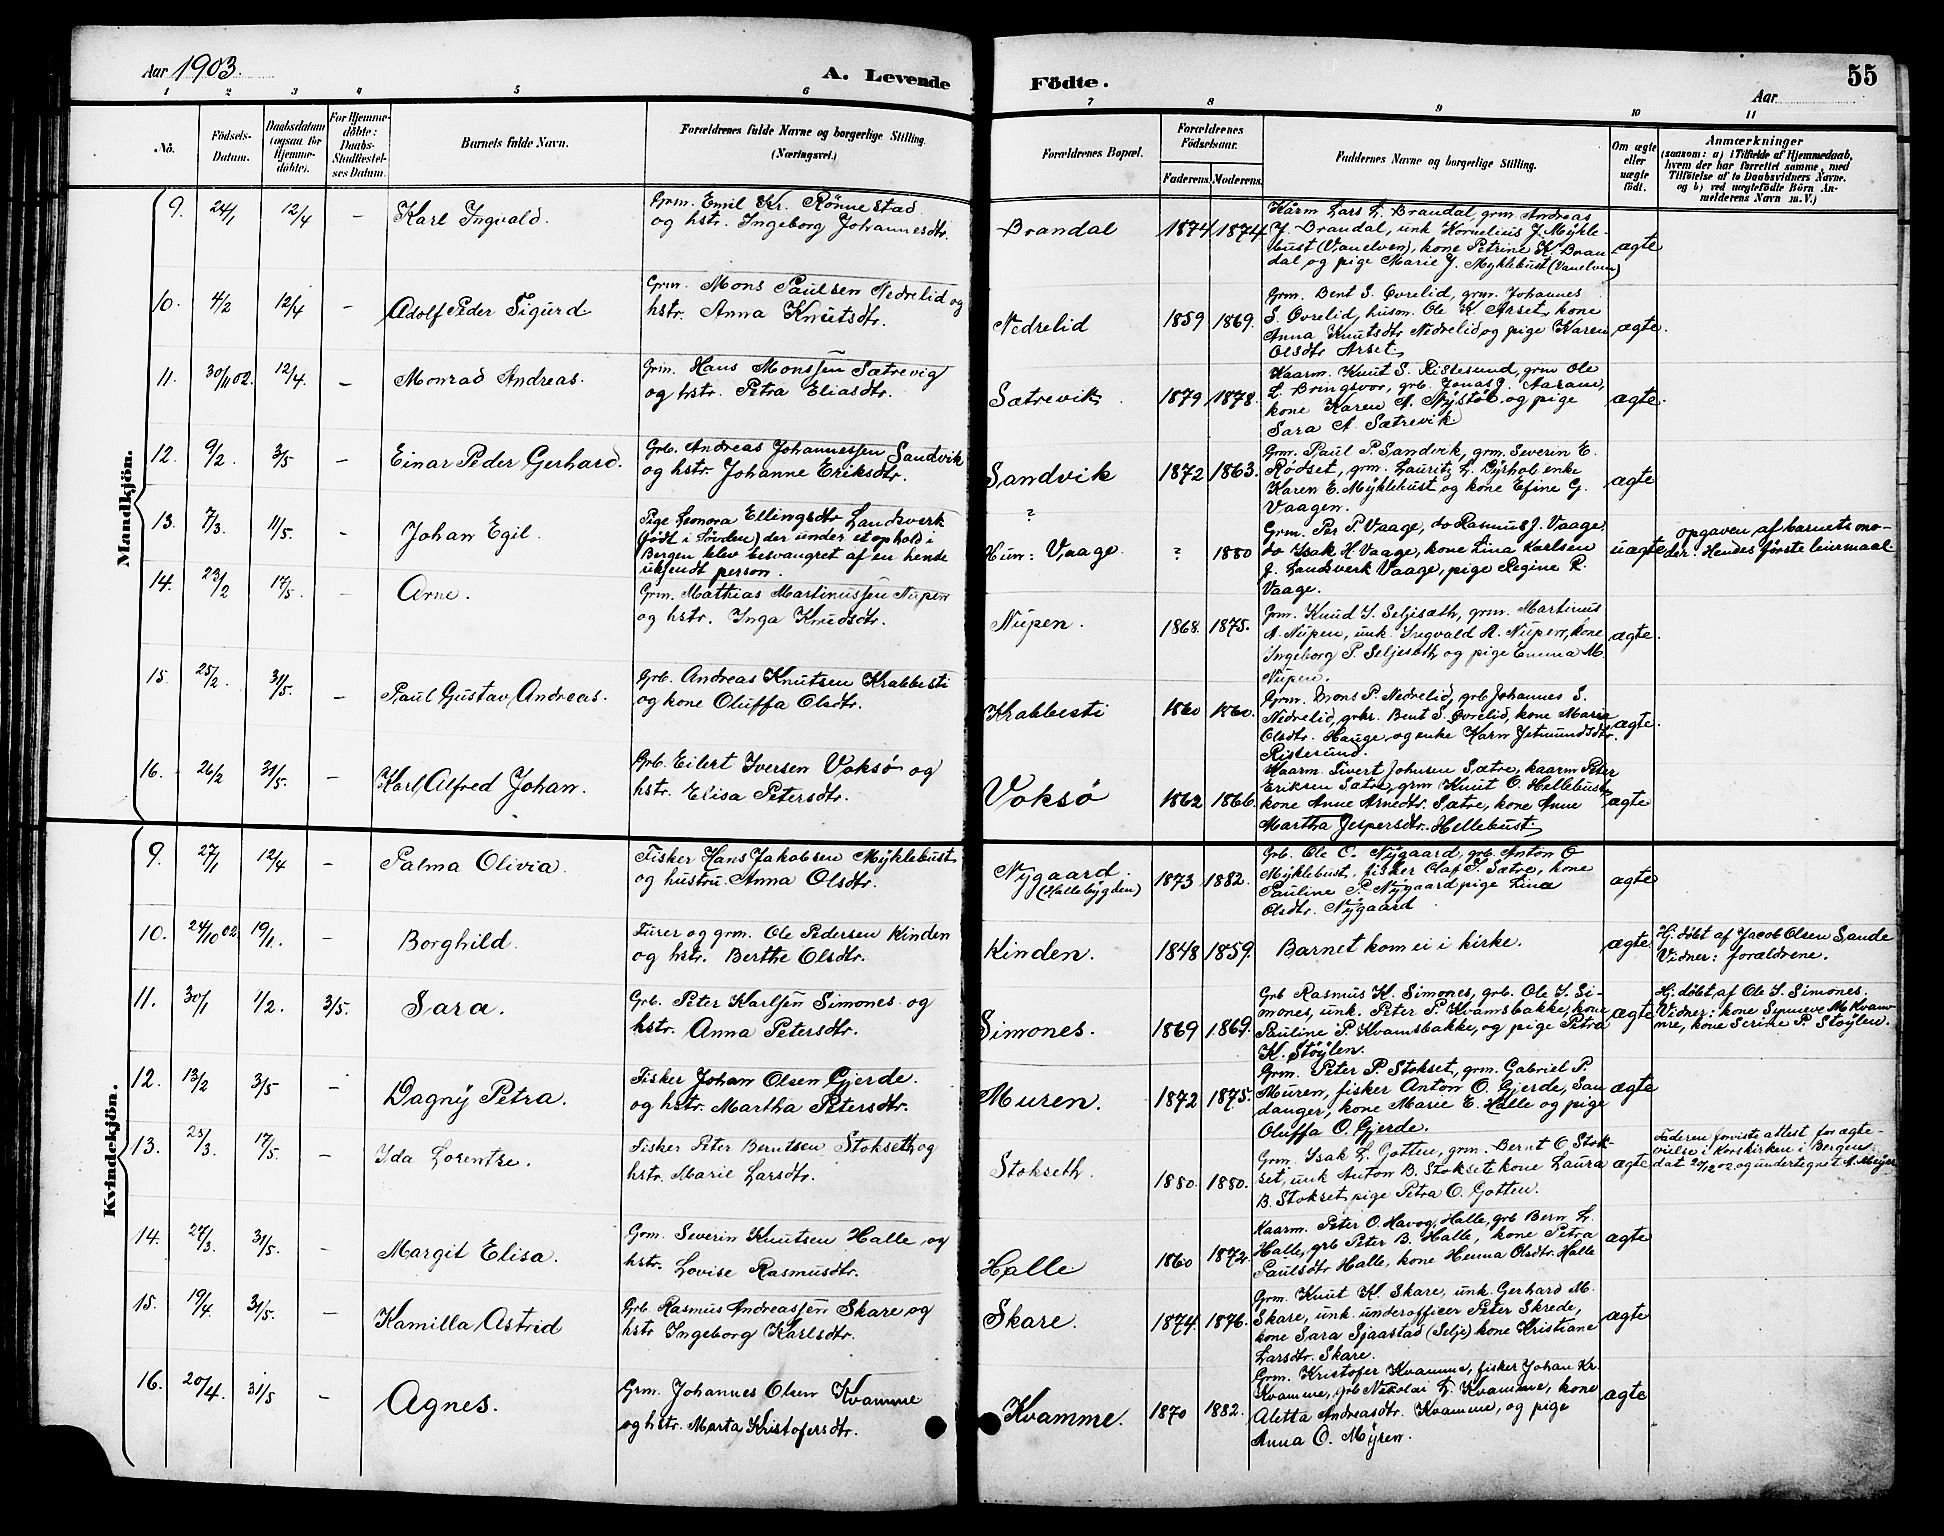 Aar 1903.
A. Levende Födte.
55
Aar
1 2 3 4 5 6 7 8 9 10 11
No.
Födsels-Datum.
Daabsdatum (ogsaa for Hjemme-döbte).
For Hjemme-döbte: Daabs-Stadfæstel-ses Datum.
Barnets fulde Navn.
Forældrenes fulde Navne og borgerlige Stilling. (Næringsvei.)
Forældrenes Bopæl.
Forældrenes Födselsaar.
Faderens. Moderens.
Faddernes Navne og borgerlige Stilling.
Om ægte eller uægte födt.
Anmærkninger
(saasom: a) i Tilfælde af Hjemmedaab, hvem der har forrettet samme, med Tilföielse af to Daabsvidners Navne. og b) ved uægtefödte Börn An-melderens Navn m.V.)
Mandkjön.
9. 24/1 12/4 – Karl Ingvald.
Grm. Emil Kr. Rönnestad
og hstr. Ingeborg Johannesdtr.
Brandal 1874 1874
Kårm Lars L. Brandal, grm. Andreas
J. Brandal, unk Kornelius J. Mykle-
bust (Vanelven), kone Petrine K. Bran
dal, og pige Marie J. Myklebust (Vanelven)
ægte
10. 4/2 12/4 – Adolf Peder Sigurd
Grm. Mons Paulsen Nedrelid og
hstr. Anna Knutsdtr.
Nedrelid 1859 1869.
Grm. Bent S. Øvrelid, grm. Johannes
S. Øvrelid, husm. Ole K. Arset, kone
Anna Knutsdtr Nedrelid, og pige Karen
Olsdtr Arset.
ægte.
11. 30/11 02. 12/4. – Monrad Andreas.
Grm. Hans Monssen Sætrevig
og hstr. Petra Eliasdtr.
Sætrevik. 1879 1878.
Kaarm. Knut S. Ristesund, grm Ole
L. Bringsvor, grb. Jonas J. Aaram,
kone Karen A. Nystöl og pige
Sara A. Sætrevik
ægte.
12. 9/2. 3/5 – Einar Peder Gerhard.
Grb. Andreas Johannessen Sandvik
og hstr. Johanne Eriksdtr.
Sandvik 1872 1863.
Grm. Paul P. Sandvik, grm. Severin E.
Rödset, grm. Lauritz L. Dyrhol enke
Karen E. Myklebust og kone Efine G.
Vaagen.
ægte
13. 7/3. 11/5. – Johan Egil.
Pige Leonora Ellingsdtr Landsverk
(födt i Sövden) der under et ophold i
Bergen blev besvangret af en hende
ukjendt person.
?
Hun: Vaage. ? 1880
Grm. Per P. Vaage, do Rasmus J. Vaage
do Isak H Vaage, kone Lina Karlsen
J. Landsverk Vaage, pige Regine R.
Vaage.
uægte
opgaven af barnets mo-
der. Hendes første leiermaal
14. 23/2 17/5. – Arne.
Grm. Mathias Martinussen Nupen
og hstr. Inga Knudsdtr.
Nupen. 1868. 1875.
Grm. Knud S. Seljesæth, grm. Martinus
A. Nupen, unk. Ingvald A. Nupen, kone
Ingeborg P. Seljesæth og pige Emma M.
Nupen.
ægte.
15. 25/2. 31/5. – Paul Gustav Andreas.
Grb. Andreas Knutsen Krabbesti
og kone Oluffa Olsdtr.
Krabbesti 1860 1860.
Grm. Mons P. Nedrelid, grb Johannes S.
Nedrelid, grbr. Bent S. Øvrelid, kone Marie
Olsdtr. Hauge, og enke Karn Jetmundsdtr.
Ristesund.
ægte.
16. 26/2 31/5. – Karl Alfred Johan.
Grb. Eilert Iversen Voksö og
hstr. Elisa Petersdtr.
Voksö 1862 1866.
Kaarm. Sivert Johnsen Sætre, kaarm Peter
Eriksen Sætre, grm Knut O. Hellebust,
kone Anne Arnedtr. Sætre, kone Anne
Martha Jespersdtr. Hellebust.
ægte
Kvindekjön.
9. 27/1 12/4 – Palma Olivia.
Fisker Hans Jakobsen Myklebust
og hustru Anna Olsdtr.
Nygaard
(Hallebygden)
1873 1882.
Grb. Ole O. Nygaard, grb. Anton O
Myklebust, fisker Olaf S. Sætre, kone
Pauline P. Nygaard pige Lina
Olsdtr. Nygaard
ægte
10. 24/10 02 19/1. – Borghild.
Furer og grm. Ole Pedersen Kinden
og hstr. Berthe Olsdtr.
Kinden. 1848 1859.
Barnet kom ei i kirke.
ægte
Hj. döbt af Jacob Olsen Sande
Vidner: forældrene.
11. 30/1 1/2. 3/5. Sara.
Grb. Peter Karlsen Simones og
hstr. Anna Petersdtr.
Simones. 1869 1869.
Grb Rasmus K. Simones, grb. Ole S. Si-
mones, unk. Peter P. Kvamsbakke, kone
Pauline P. Kvamsbakke, og pige Petra
K. Stöylen.
ægte
Hj. döbt af Ole S. Simones.
Vidner: kone Synneve M Kvam-
me, kone Serine P. Stöylen.
12. 13/2 3/5 – Dagny Petra.
Fisker Johan Olsen Gjerde.
og hstr. Martha Petersdtr.
Muren. 1872 1875.
Grm. Peter P. Stokset, grm. Gabriel P.
Muren, fisker Anton O. Gjerde, San
danger, kone Marie E. Halle og pige
Oluffa O. Gjerde.
ægte
13. 23/3. 17/5. – Ida Lorentze.
Fisker Peter Berntsen Stokseth og
hstr. Marie Larsdtr.
Stokseth. 1880. 1880.
Grm. Isak L. Gotten, grm. Bernt O Stok-
set, unk Anton B. Stokset kone Laura
B. Stokset, pige Petra O. Gotten.
ægte
Faderen forviste attest for ægte-
vielse i Korskirken i Bergen
dat 20/12 02 og undertegnet A. Meyer
14. 27/3. 31/5. – Margit Elisa.
Gom. Severin Knutsen Halle og
hstr. Lovise Rasmusdtr.
Halle 1860 1872.
Kaarm. Peter O. Havog, Halle, grb Bern. L.
Halle, grb Peter B. Halle, kone Petra
Paulsdtr Halle, kone Henna Olsdtr. Halle
ægte
15. 19/4 31/5. – Kamilla Astrid
Grb. Rasmus Andreassen Skare og
hstr Ingeborg Karlsdtr.
Skare. 1874. 1876.
Grm. Knut K. Skare, unk. Gerhard M.
Skare, unk. underofficer Peter Skrede,
kone Sara Sjaastad (Selje) kone Kristiane
Larsdtr. Skare.
ægte
16. 20/4. 31/5 – Agnes.
Grm. Johannes Olsen Kvamme
og hstr. Marta Kristofersdtr.
Kvamme. 1870 1882.
Grm. Kristofer Kvamme, fisker Johan Kr.
Kvamme, grb Nikolai L. Kvamme, kone
Aletta Andreasdtr. Kvamme, og pige
Anna O. Myren.
ægte